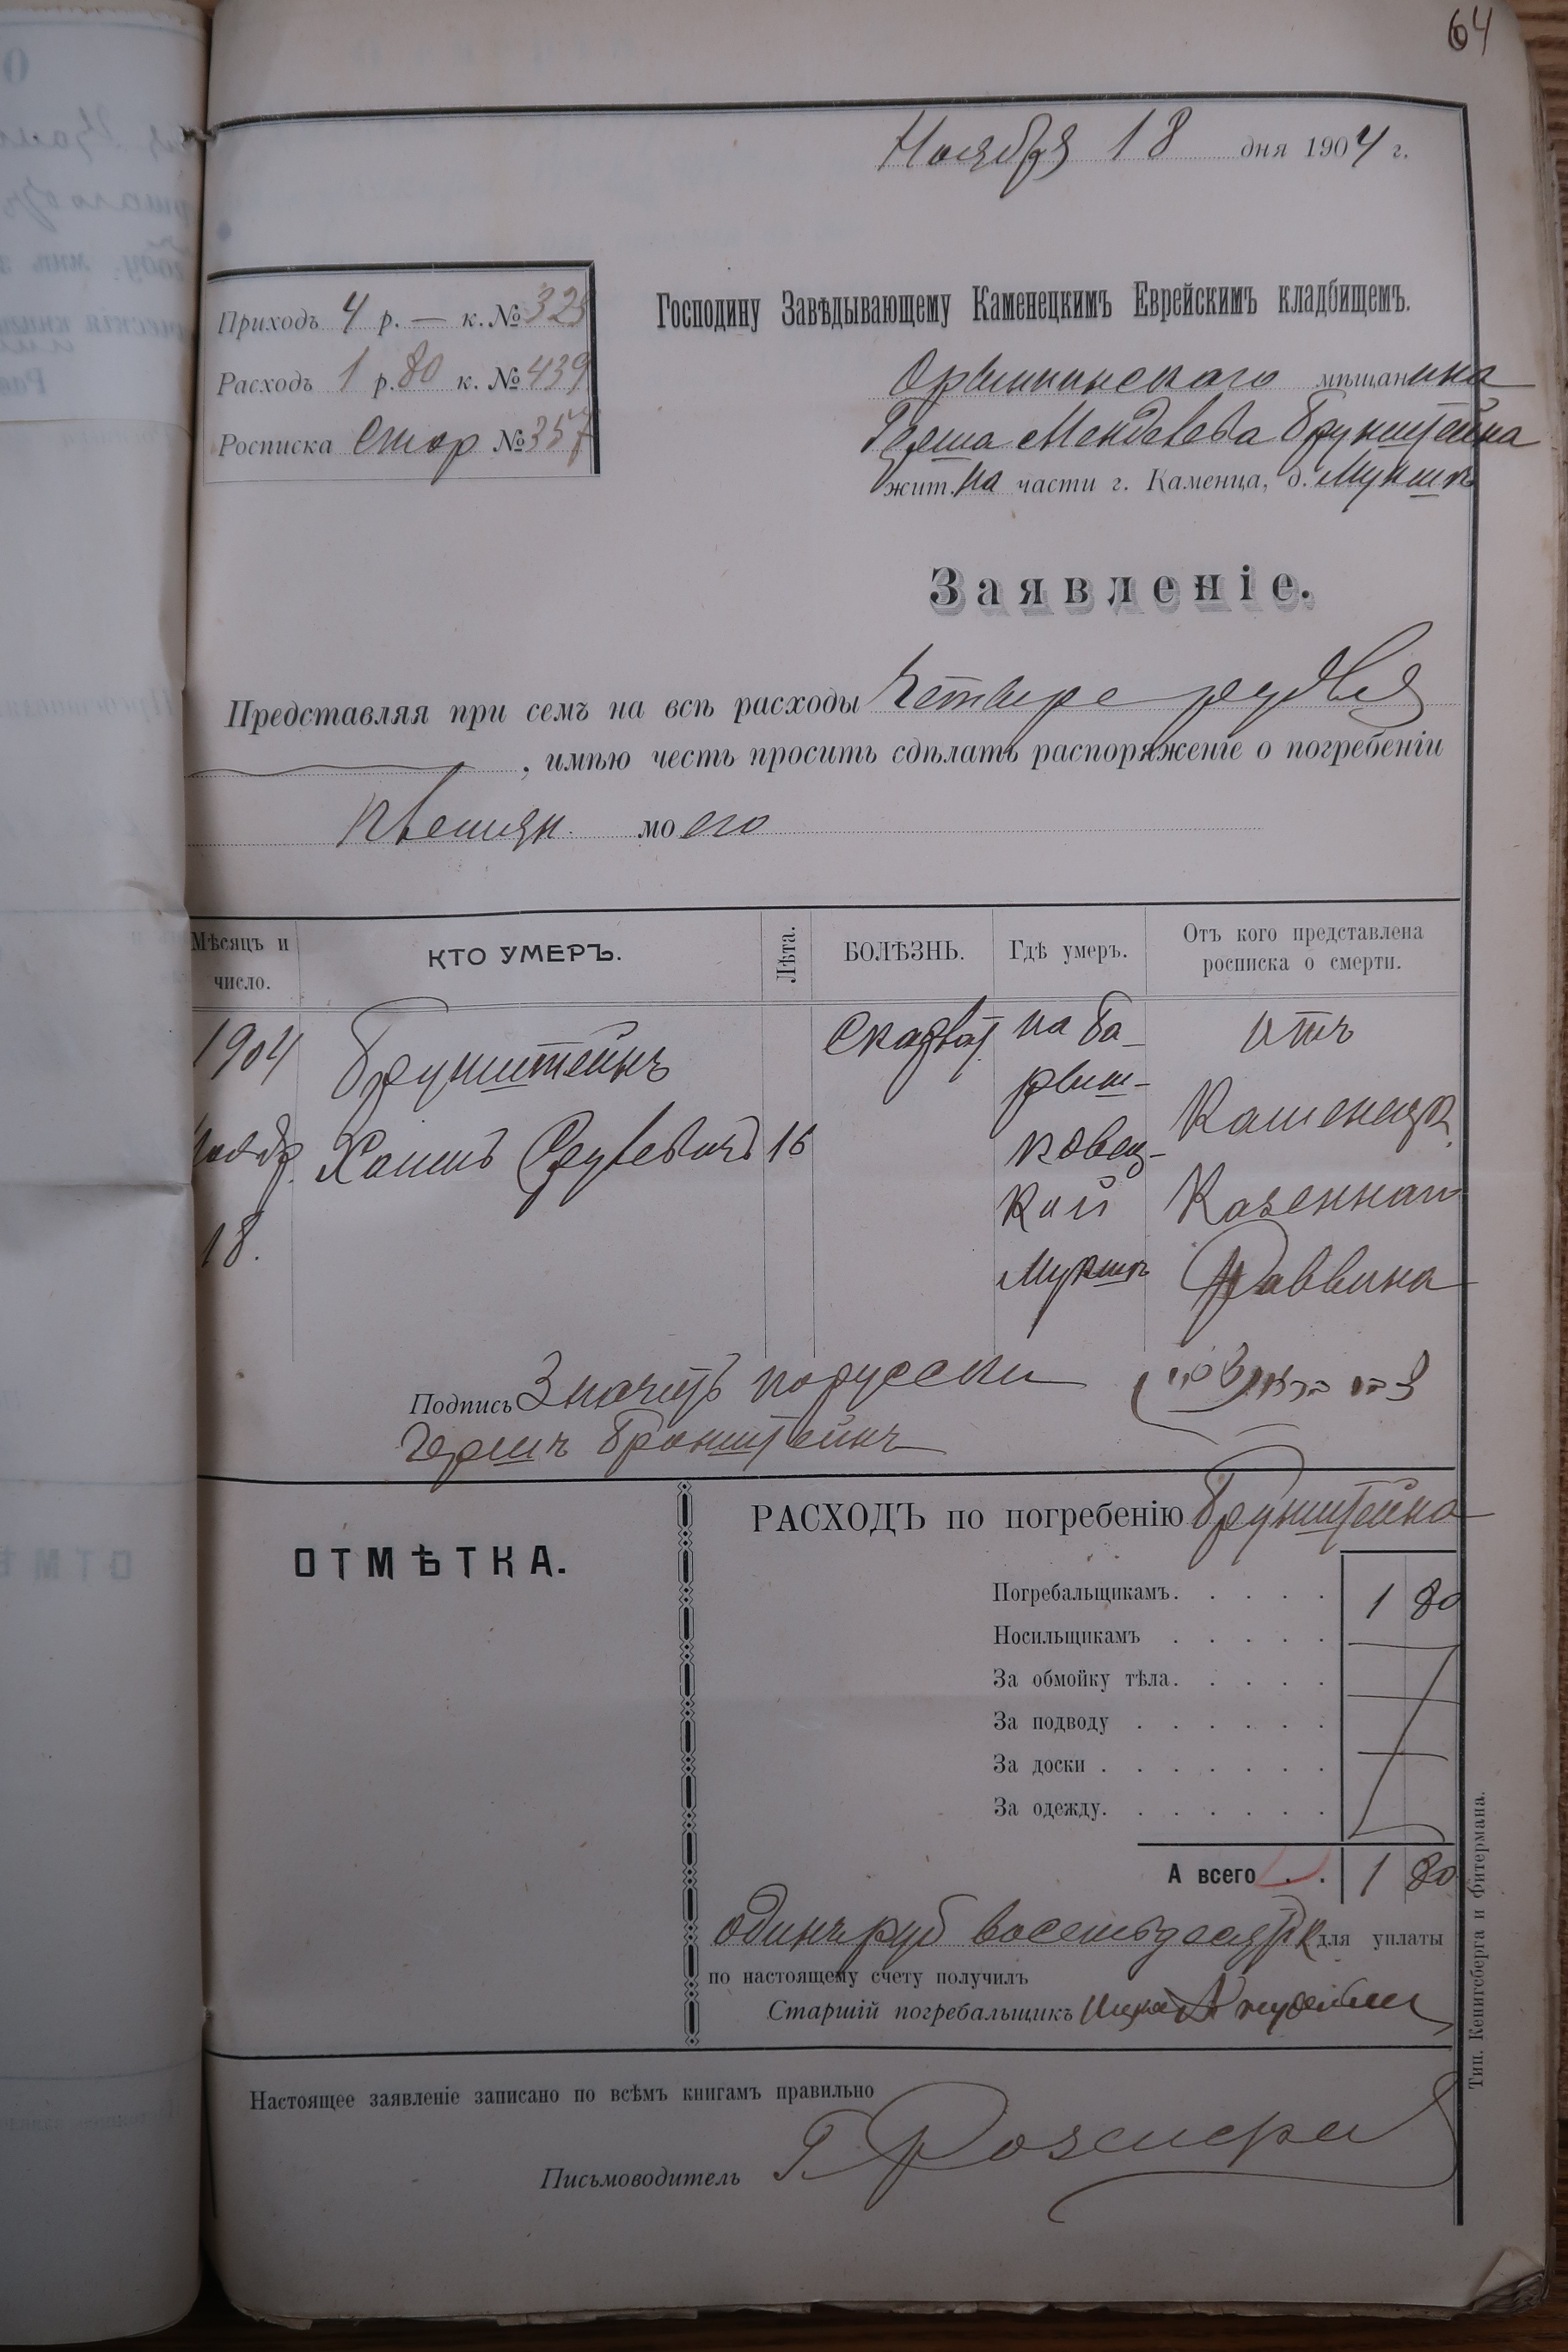 64
Ноября 18 дня 1904 г.
Приходъ 4 р. — к. № 325
Расходъ 1 р. 80 к. № 439
Росписка Стор № 357
Господину Завѣдывающему Каменецкимъ Еврейскимъ кладбищемъ.
Орынинскаго мѣщанина
Герша Менделева Брунштейна
жит. на части г. Каменца, д. Мукшѣ
Заявленіе.
Представляя при семъ на всѣ расходы Четыре рубля
, имѣю честь просить сдѣлать распоряженіе о погребеніи
племян. моего
Мѣсяцъ и число.
КТО УМЕРЪ.
Лѣта.
БОЛѢЗНЬ.
Гдѣ умеръ.
Отъ кого представлена росписка о смерти.
1904
Ноябр.
18.
Брунштейнъ
Хаимъ
16
на Ба-
рыш-
ковец-
кой
Мукшѣ
отъ
Каменецк.
Казеннаго
Раввина
Подпись Значитъ порусски
Гершъ Бронштейнъ
ОТМѢТКА.
РАСХОДЪ по погребенію Брунштейна
Погребальщикамъ. . . . . 1 80
Носильщикамъ . . . . .
За обмойку тѣла. . . . .
За подводу . . . . . .
За доски . . . . . . .
За одежду. . . . . . .
А всего . . 1 80
Одинъ руб восемьдесятъ к для уплаты
по настоящему счету получилъ
Старшій погребальщикъ
Настоящее заявленіе записано по всѣмъ книгамъ правильно
Письмоводитель
Тип. Кенигсберга и Фитермана.